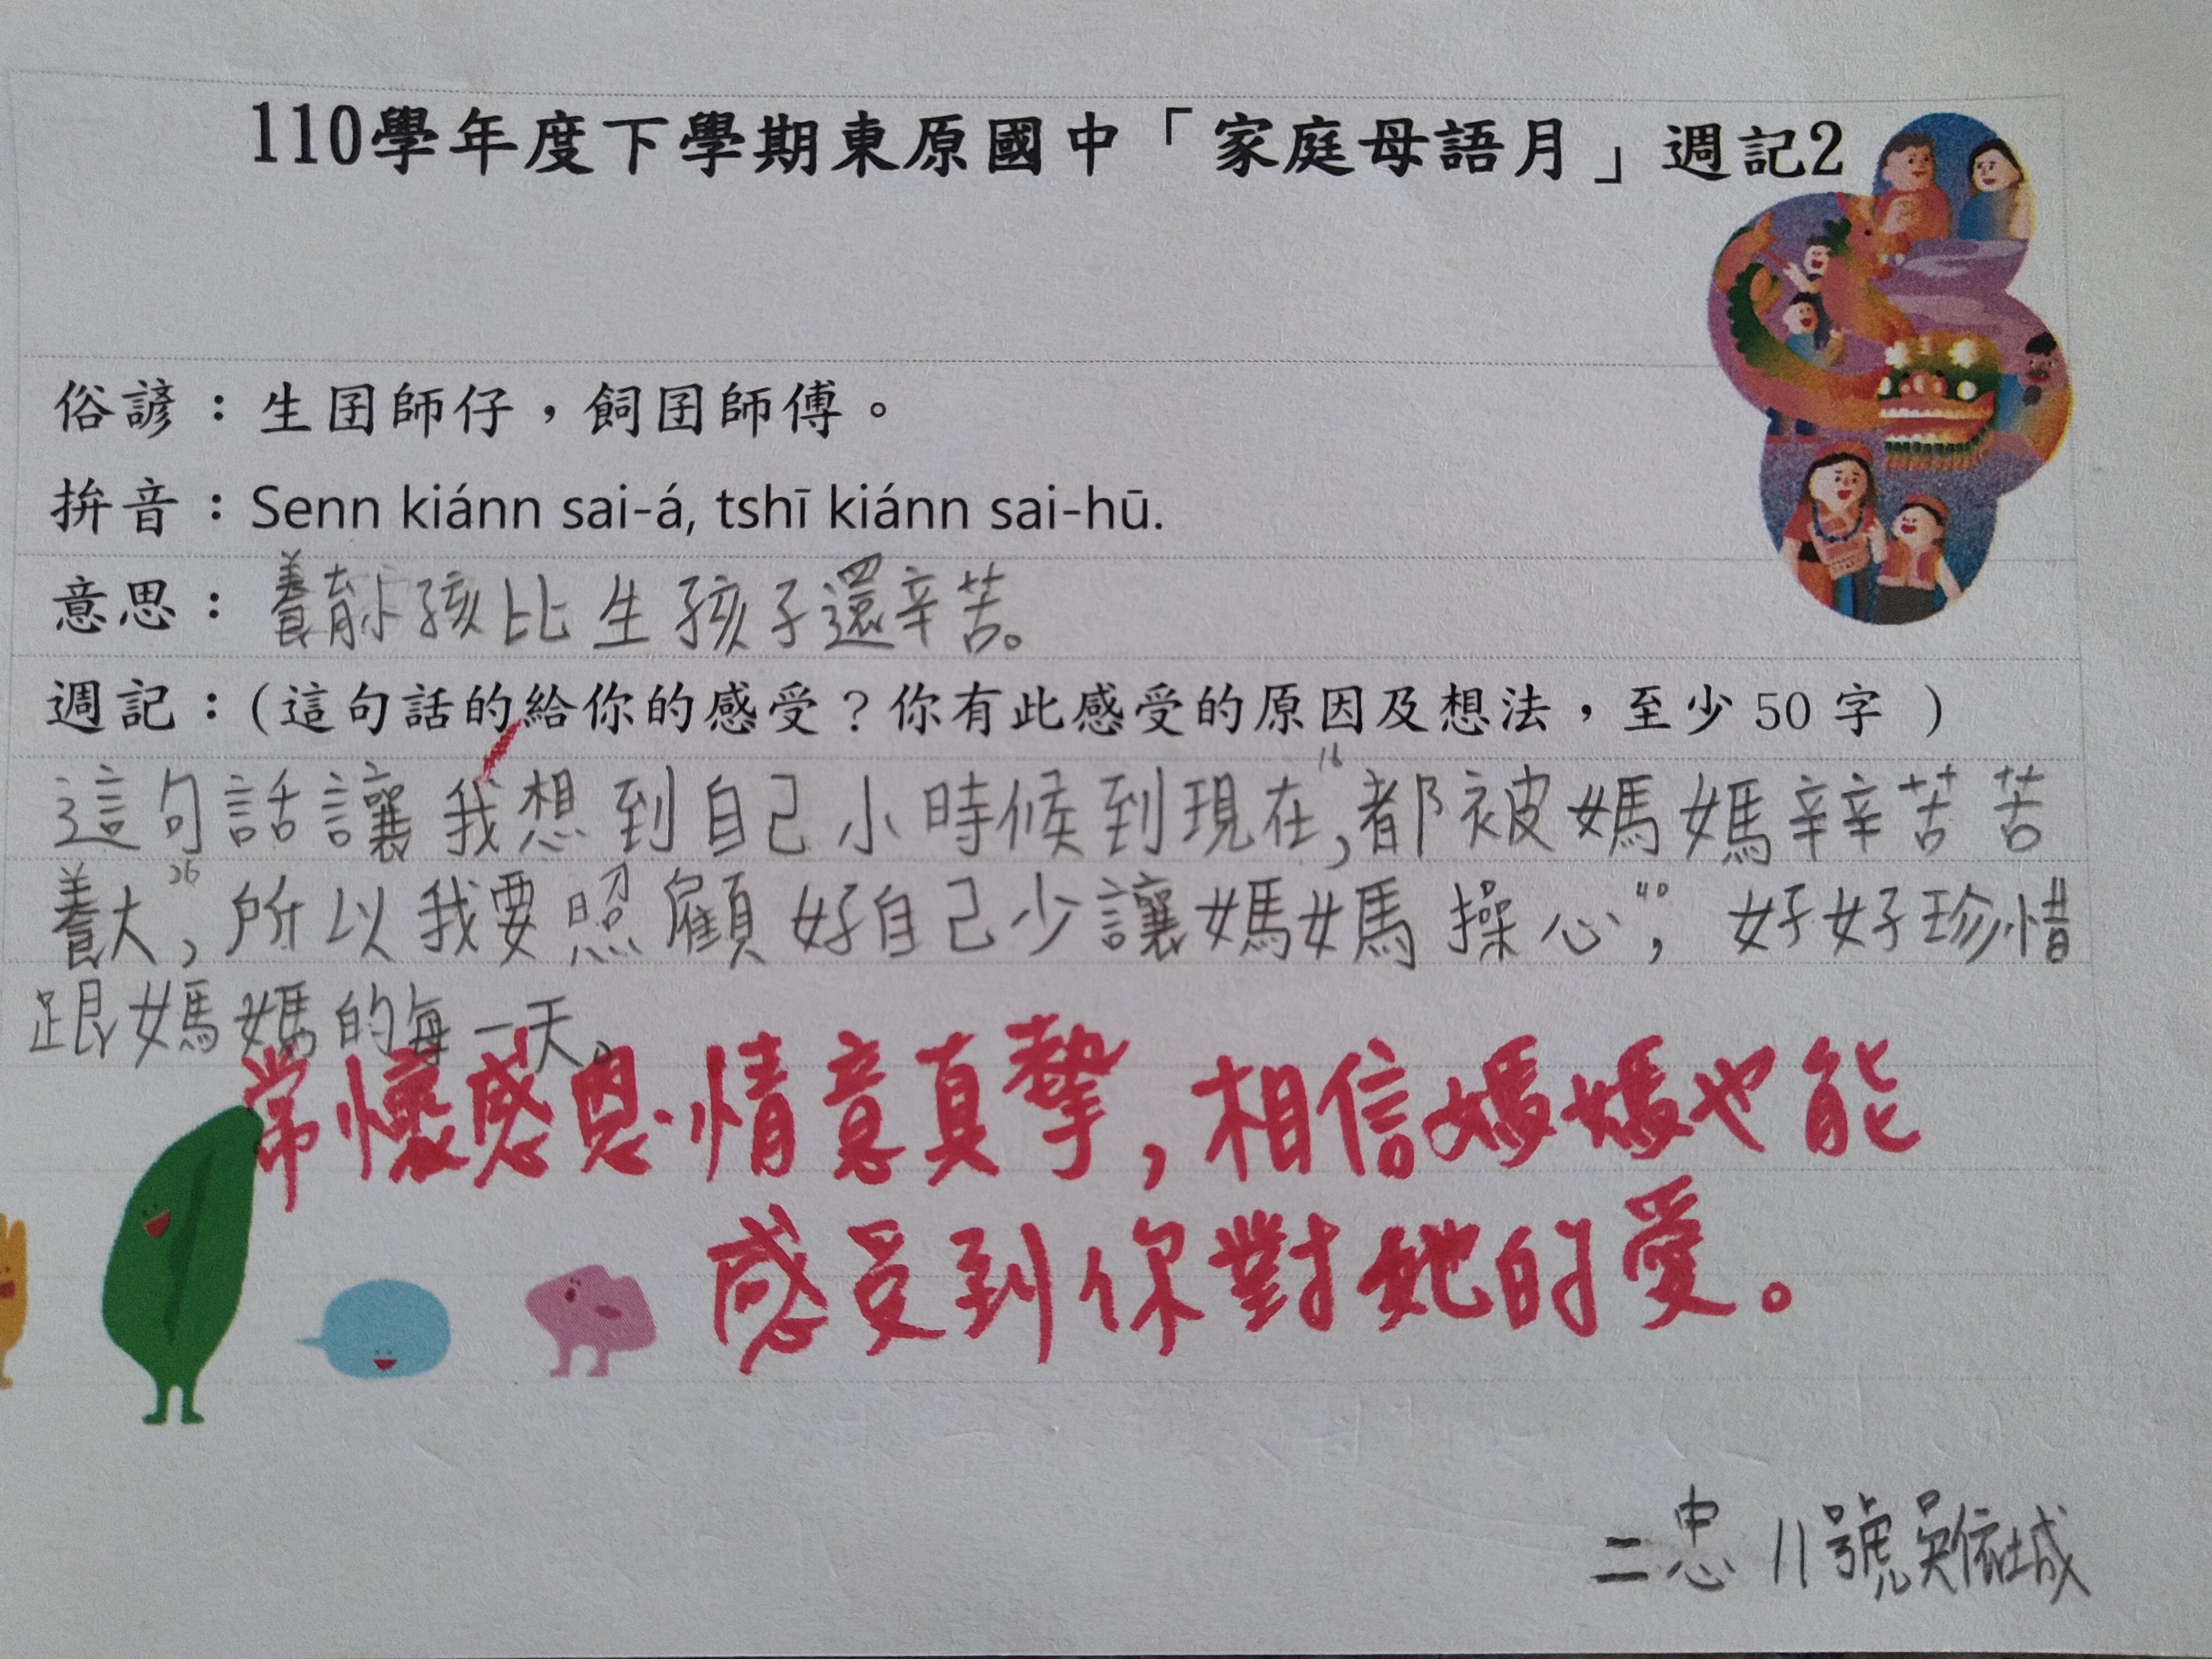 110學年度下學期東原國中「家庭母語月」週記2
俗諺：生囝師仔，飼囝師傅。
拼音：Senn kiánn sai-á, tshī kiánn sai-hū.
意思：養育小孩比生孩子還辛苦。
週記：(這句話的給你的感受？你有此感受的原因及想法，至少50字 )
這句話讓我想到自己小時候到現在,16都被媽媽辛辛苦苦
養大26,所以我要照顧好自己少讓媽媽操心40,好好珍惜
跟媽媽的每一天。
常懷感恩.情意真摯,相信媽媽也能
感受到你對她的愛。
二忠 11號吳依城